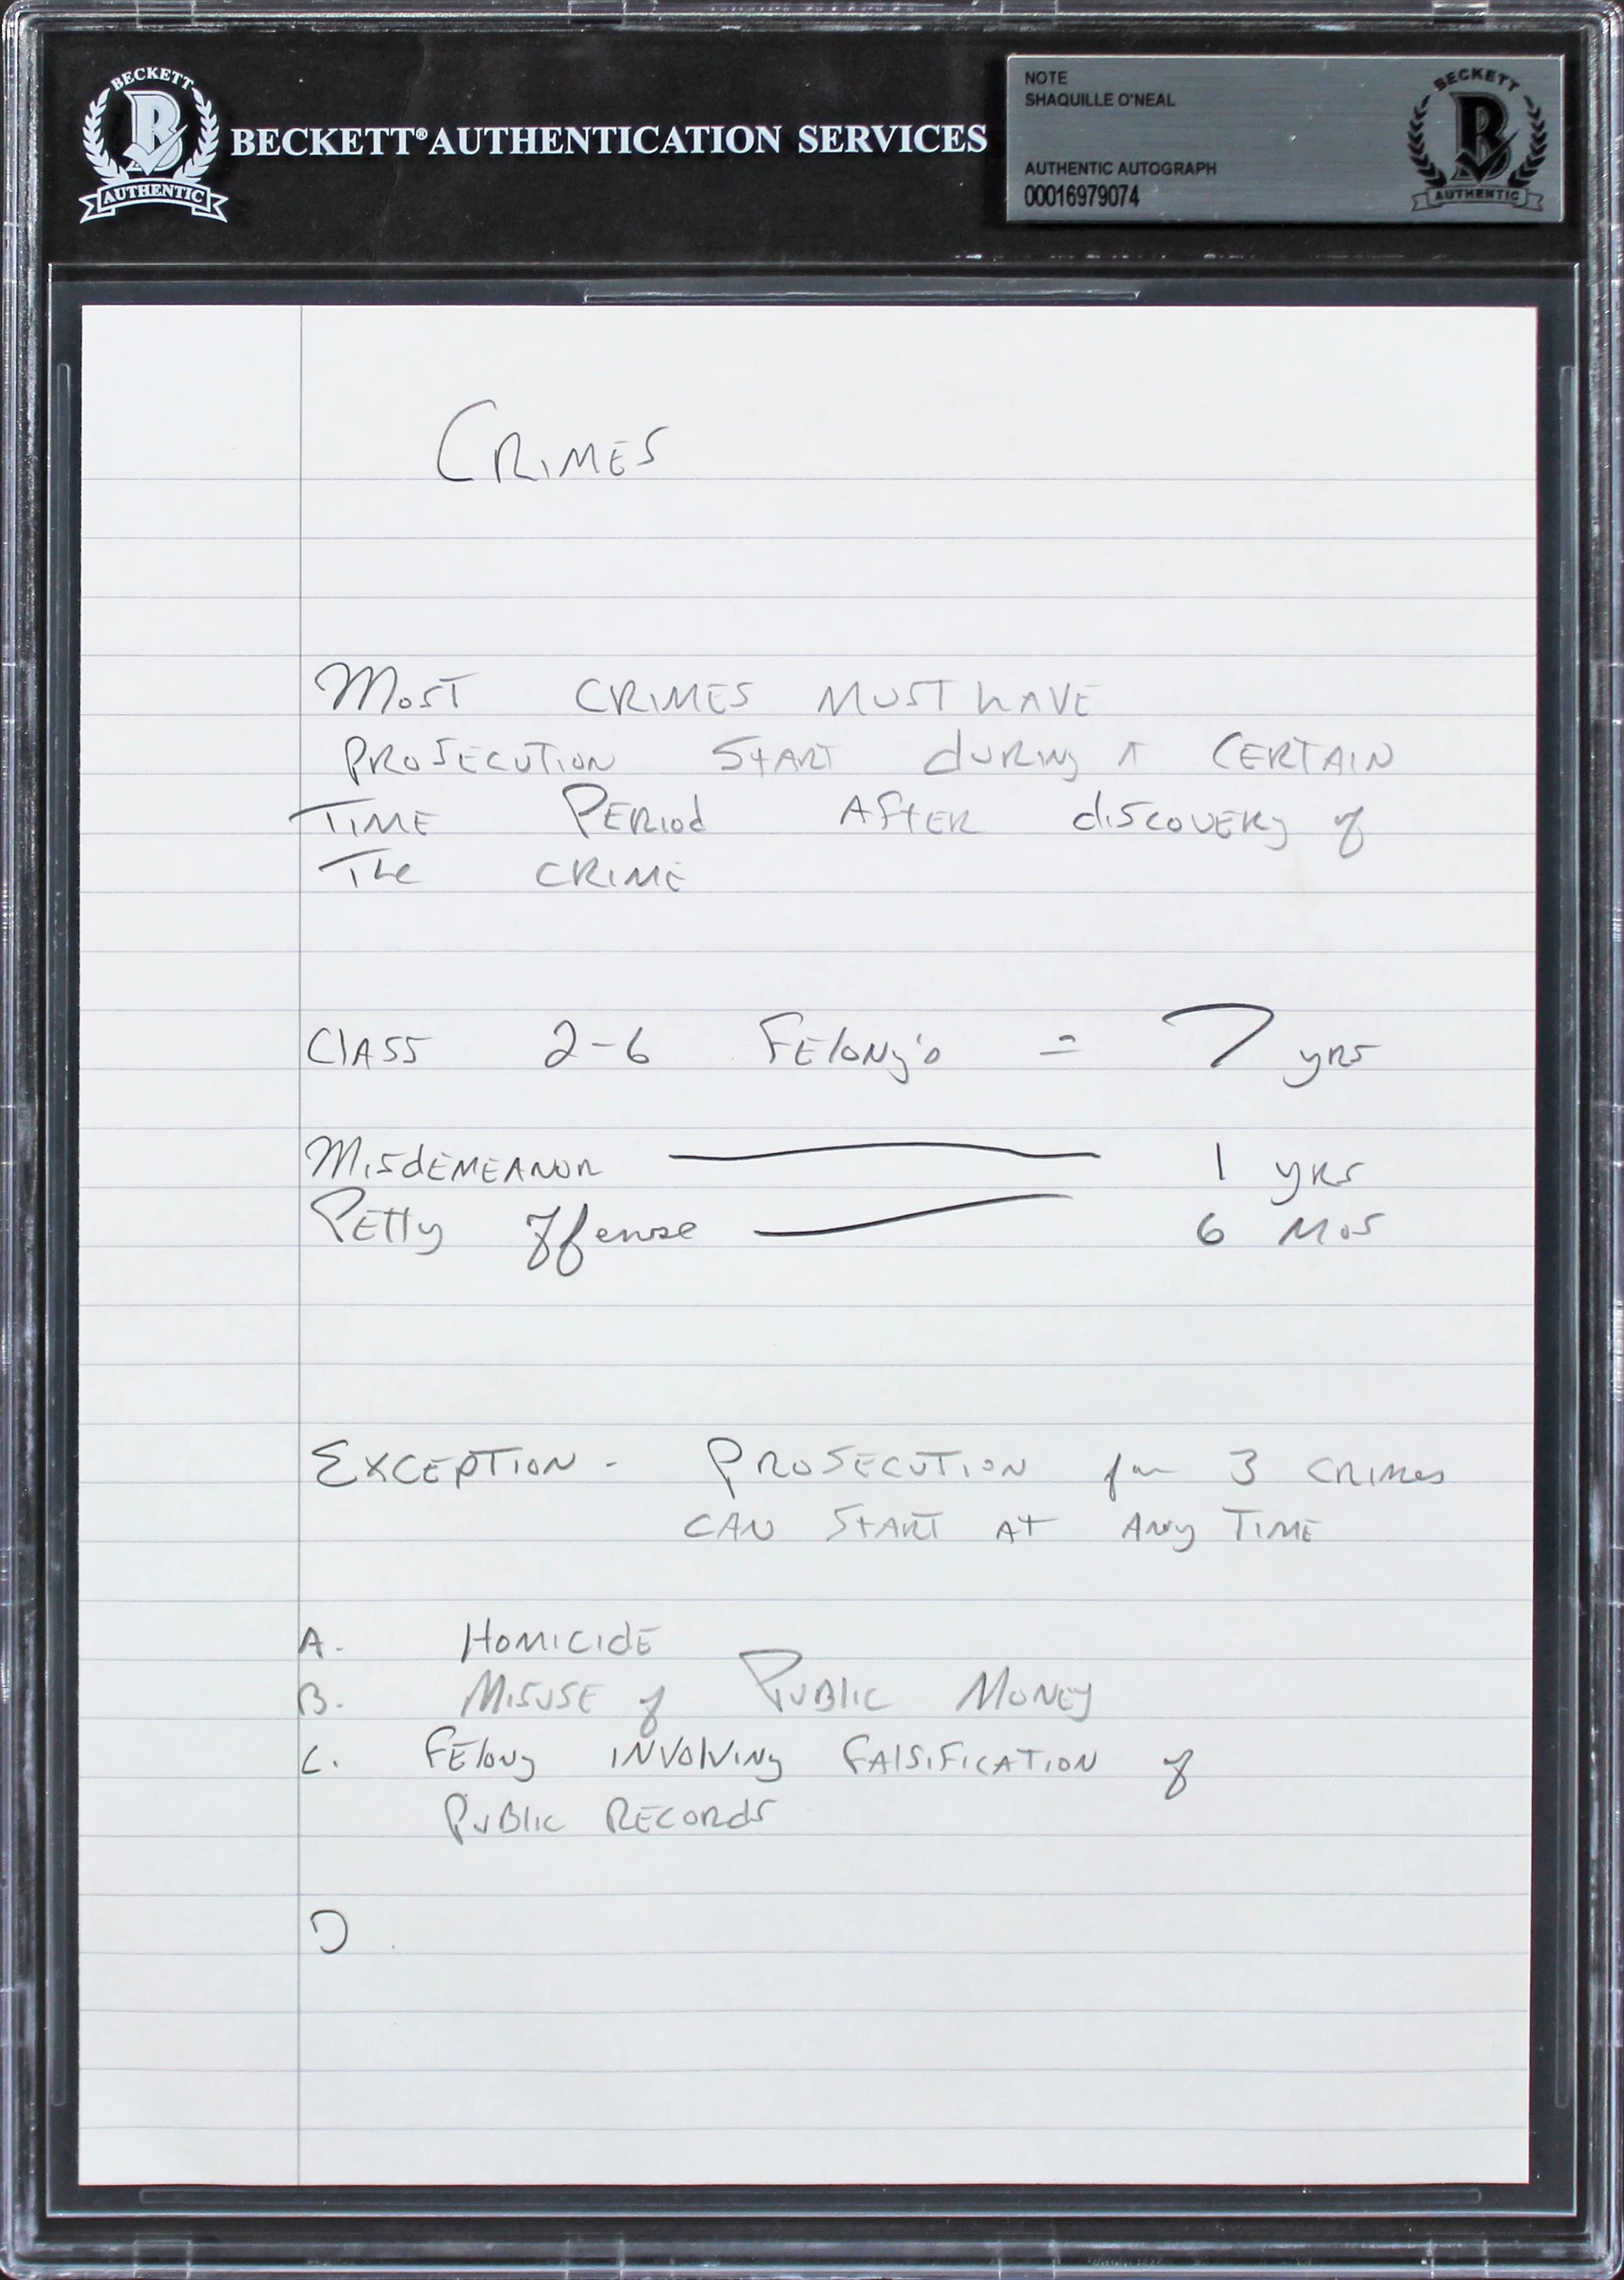 BECKETT
B
AUTHENTIC
BECKETT® AUTHENTICATION SERVICES
NOTE
SHAQUILLE O'NEAL
AUTHENTIC AUTOGRAPH
00016979074
BECKETT
B
AUTHENTIC
CRIMES
MOST CRIMES MUST HAVE
PROSECUTION START dURINg A CERTAIN
TIME PERIOd AFTER discovERy of
The CRIME
ClASS 2-6 FElONy's = 7 yRS
MISdEMEANOR — 1 yRS
PETTy Offense — 6 MOS
EXCEPTION - PROSECUTION for 3 CRIMes
CAN START AT ANy TIME
A. HOMICIdE
B. MISUSE of PUBlIC MONEy
C. FElONy INVOlVINg FAlSIFICATION of
PUBlIC RECORdS
D